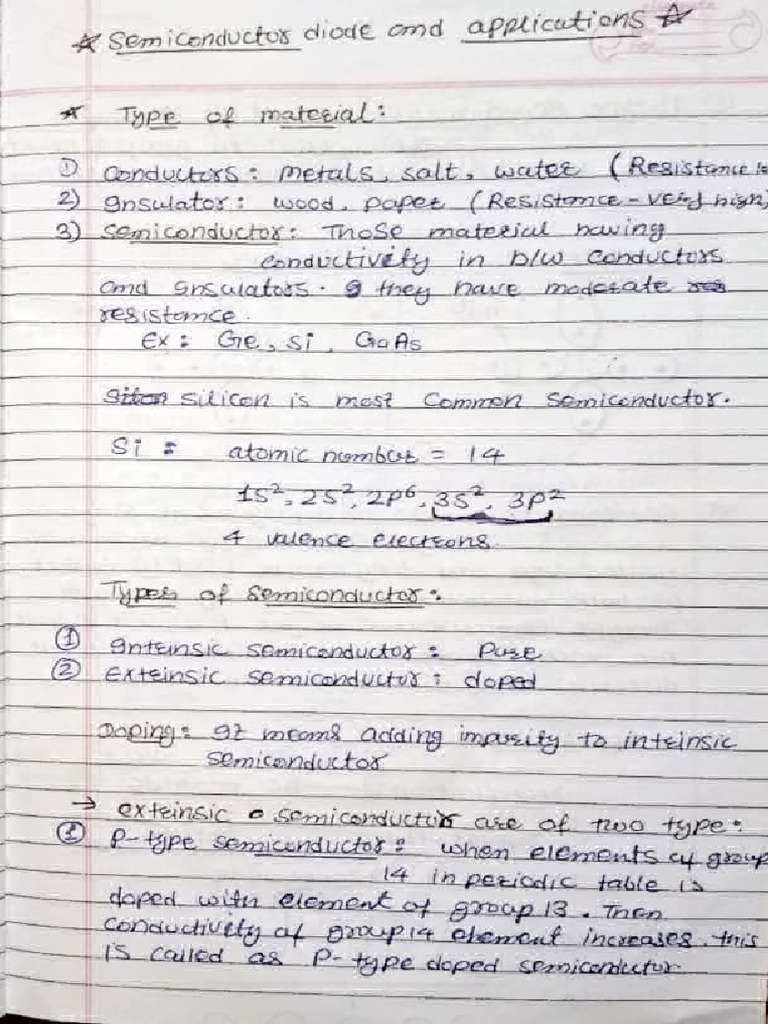 ☆ Semiconductor diode and applications ☆
☆ Type of material:
① Conductors: metals, salt, water (Resistance
2) Insulator: wood, paper (Resistance - very high)
3) Semiconductor: Those material having
conductivity in b/w conductors
and insulators. they have moderate
resistance.
Ex: Ge, Si, GaAs
Silicon is most common semiconductor.
Si: atomic number = 14
1s², 2s², 2p⁶, 3s², 3p²
4 valence electrons
Types of semiconductor:
① Intrinsic semiconductor: Pure
② extrinsic semiconductor: doped
Doping: It means adding impurity to intrinsic
semiconductor
→ extrinsic semiconductor are of two type:
① P-type semiconductor: when elements of group
14 in periodic table is
doped with element of group 13. Then
conductivity of group 14 element increases. this
is called as P-type doped semiconductor